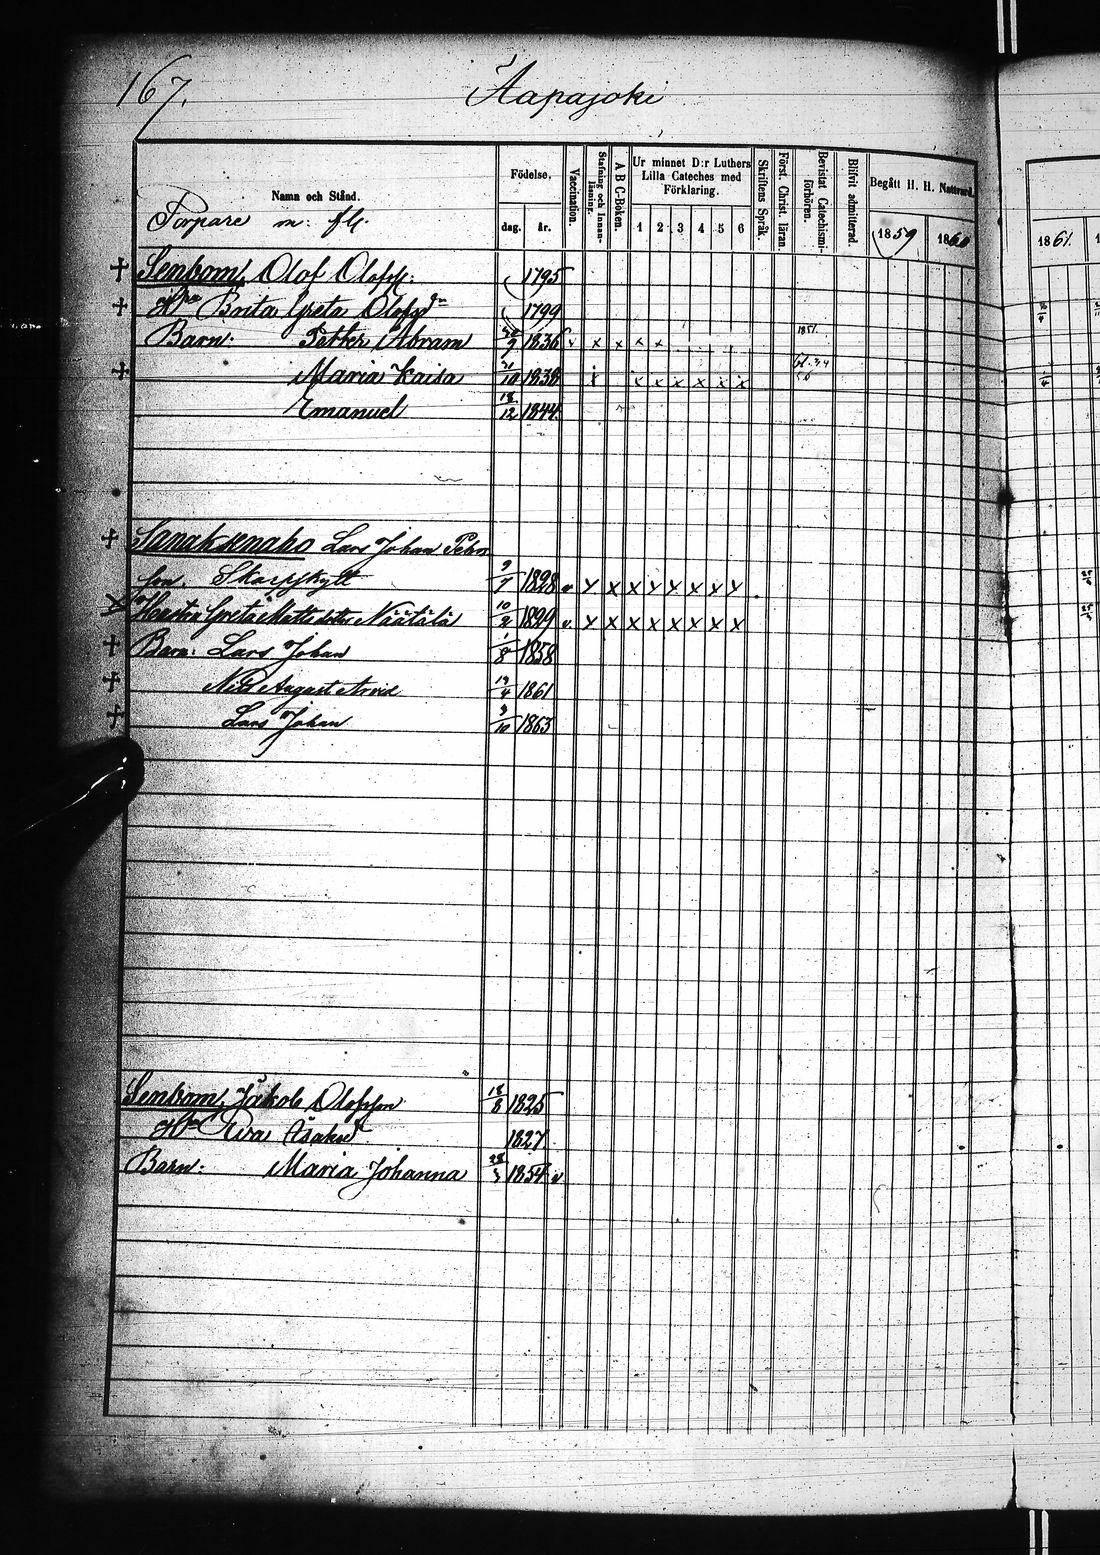 167.
Aapajoki
Namn och Stånd.
Torpare m. fl.
Födelse,
dag.
år.
Vaccination.
Stafning och Innanläsning.
A B C-Boken.
Ur minnet D:r Luthers Lilla Cateches med Förklaring.
1 2 3 4 5 6
Skriftens Språk.
Först. Christ. läran.
Bevistat Catechismiförhören.
Blifvit admitterad.
Begått H. H. Nattvard.
1859
1860
1861.
Olof Olofss. 1795
Hu Brita Greta Olofsdr 1799
Barn: Petter Abram 1836 v x x x x 1857.
Maria Kaisa 21/10 1838 x x x x x x x
Emanuel 18/12 1844
Lars Johan Peters
son. Skarpskytt 9/7 1828 v x x x x x x x x
Hustru Greta Mattsdotter Näätälä 10/2 1829 v x x x x x x x x
Barn: Lars Johan 1/8 1858
Nils August Arvid 19/4 1861
Lars Johan 3/10 1863
Jakob Olofsson 18/8 1825
Hu Eva 1827.
Barn: Maria Johanna 28/3 1854 v